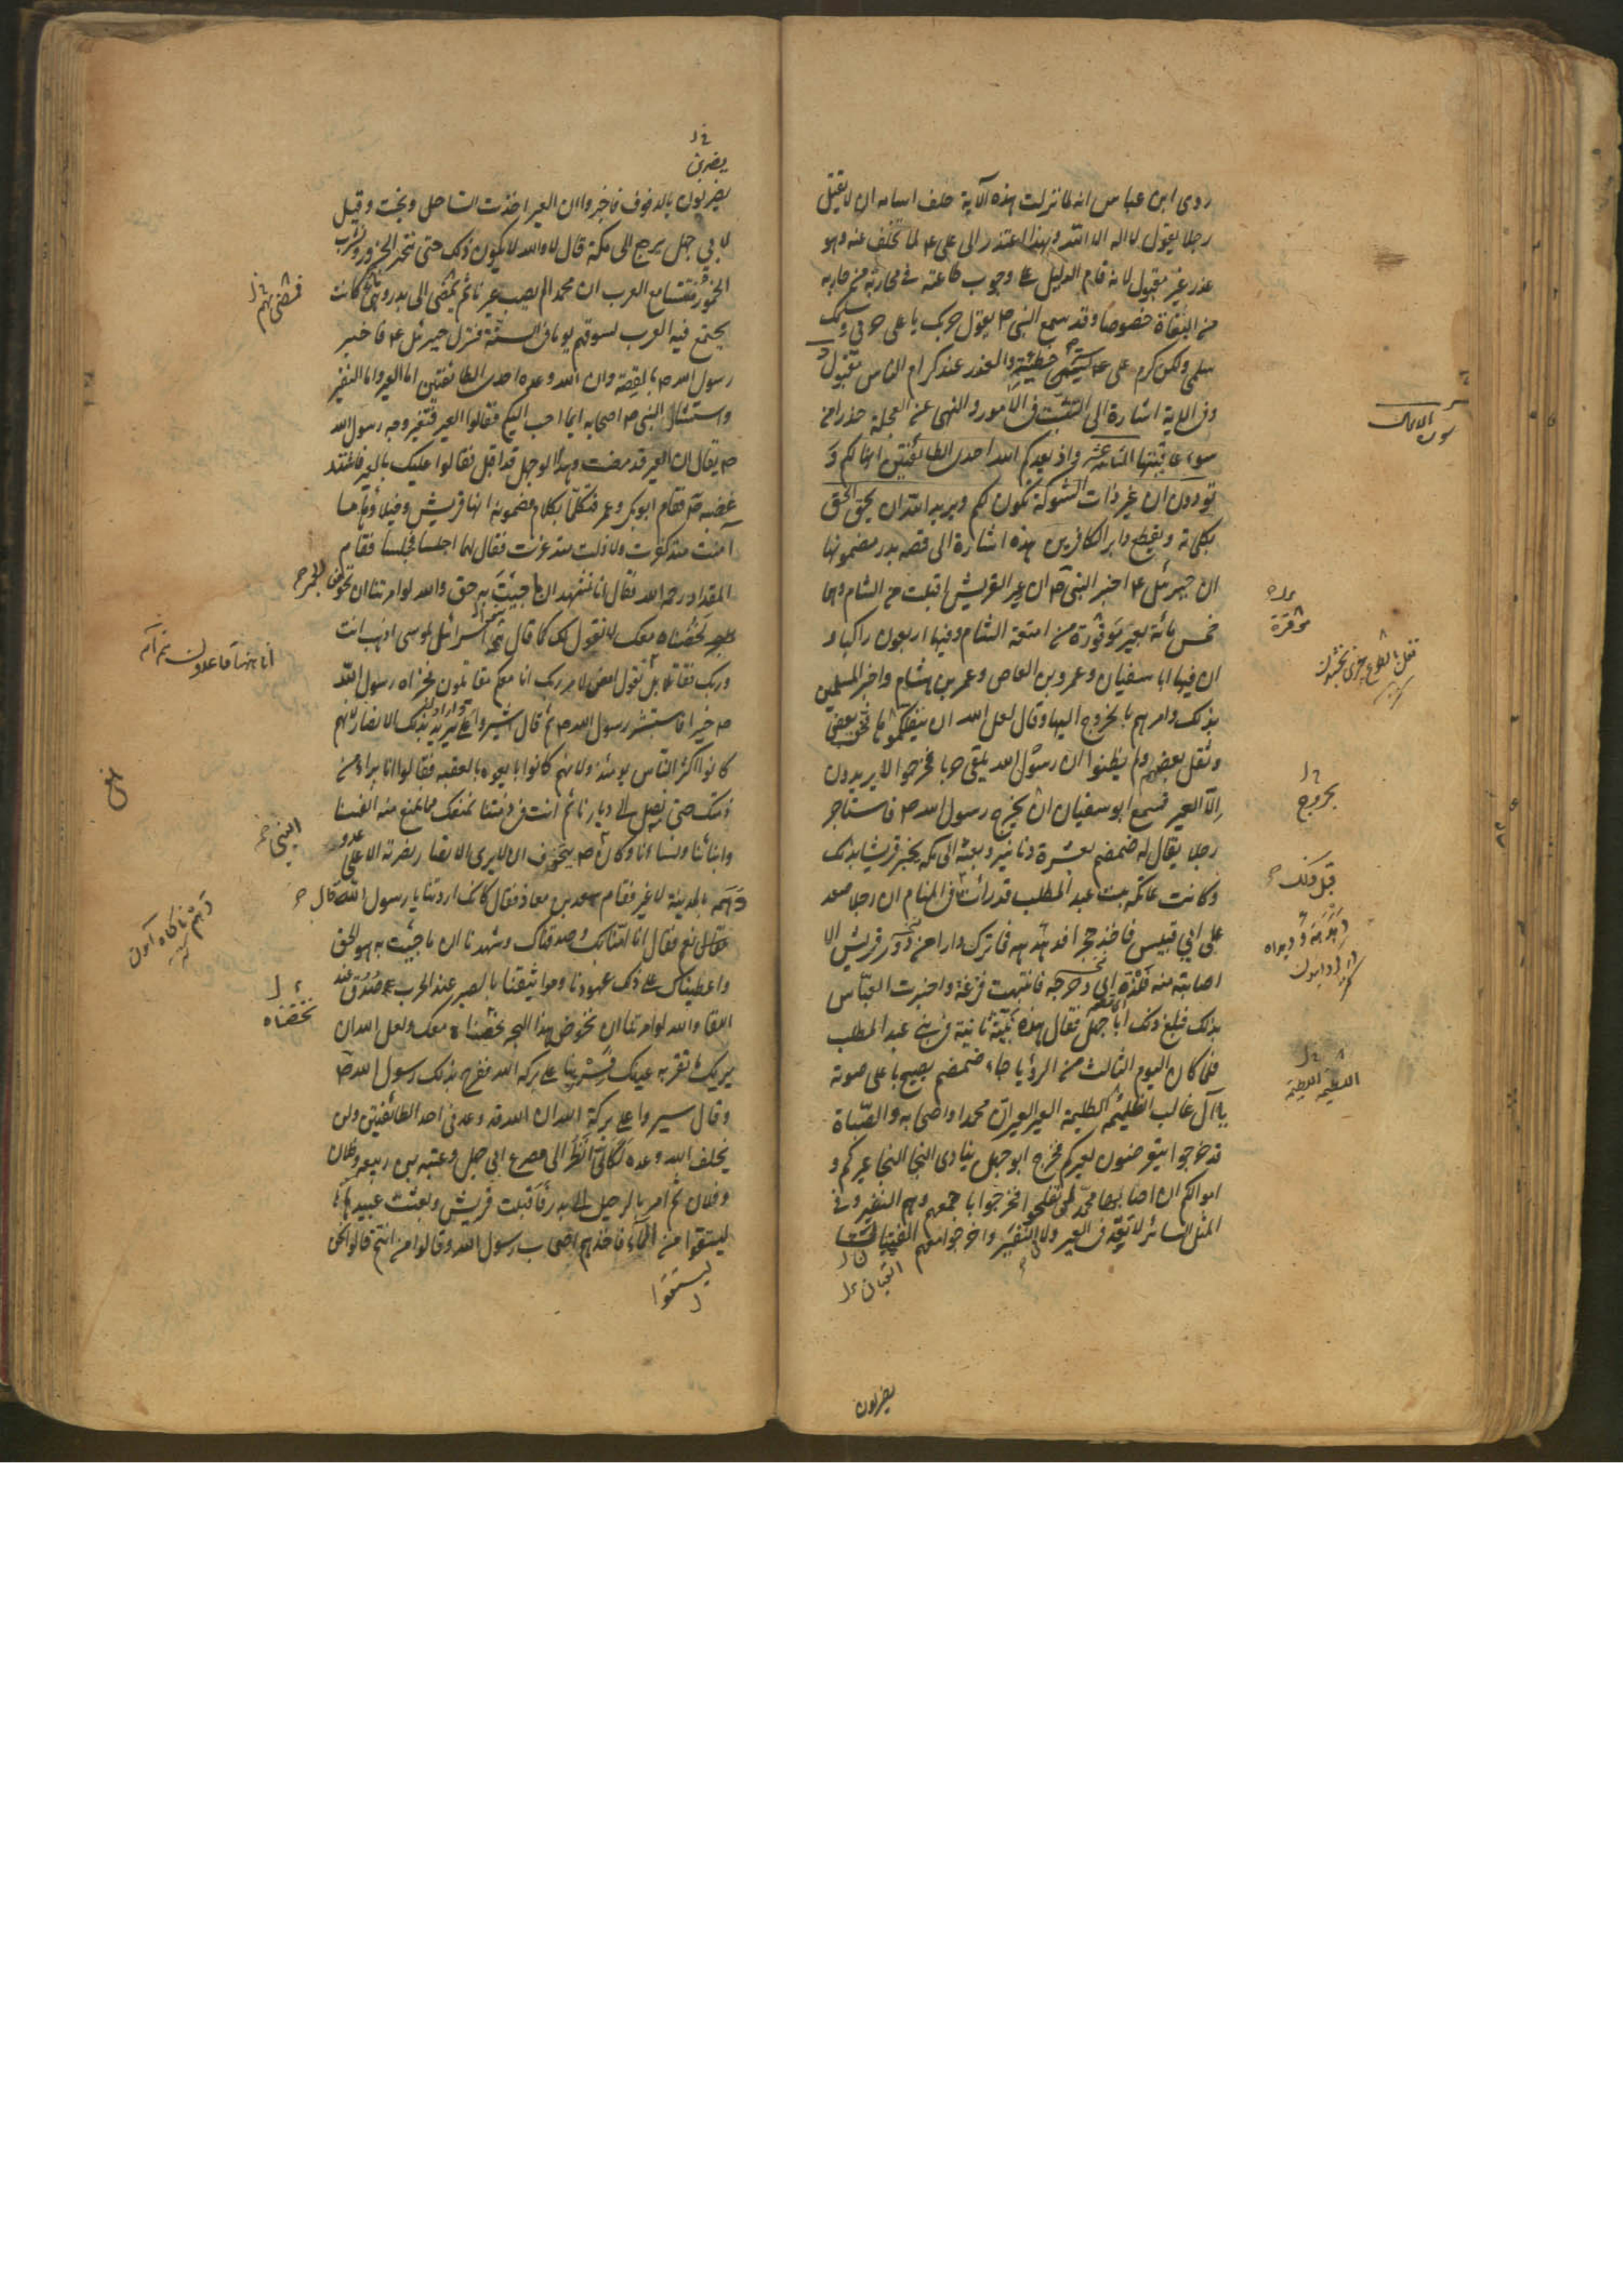 روى ابن عباس انه لما نزلت هذه الآية حلف اسامه ان لا يقتل
رجلا يقول لا اله الا الله وبهذا اعتذر الى على ع لما تخلف عنه وهو
عذر غير مقبول لانه قام الدليل على وجوب طاعته فى محاربة من حاربه
من البغاة خصوصا وقد سمع النبى ص يقول حربك يا على حربى وسلمك
سلمى ولكن كرم على ع خطيئته والعذر عند كرام الناس مقبول
وفى الاية اشارة الى التثبت فى الامور والنهى عن العجلة حذرا من
سوء عاقبتها الثامنة عشر واذ يعدكم الله احدى الطائفتين انها لكم و
تودون ان غير ذات الشوكة تكون لكم ويريد الله ان يحق الحق
بكلماته ويقطع دابر الكافرين هذه اشارة الى قصه بدر مضمونها
ان جبرئيل ع اخبر النبى ص ان عير القريش اقبلت من الشام وهى
خمس مائة بعير موقورة من امتعة الشام وفيها اربعون راكبا و
ان فيها ابا سفيان وعمرو بن العاص وعمر بن هشام واخبر المسلمين
بذلك وامرهم بالخروج اليها وقال لعل الله ان ينفلكموها فخف بعض
وثقل بعضهم ولم يظنوا ان رسول الله يلقى حربا فخرجوا لا يريدون
الا العير فسمع ابو سفيان ان يخرج رسول الله ص فاستاجر
رجلا يقال له ضمضم بعشرة دنانير وبعثه الى مكه يخبر قريشا بذلك
وكانت عاتكه بنت عبد المطلب قد رأت فى المنام ان رجلا صعد
على ابى قبيس فاخذ حجرا فدهدهه فما ترك دارا من دور قريش الا
اصابته منه فلذة فانتبهت فزعة واخبرت العباس
بذلك فبلغ ذلك ابا جهل فقال هذه نبية ثانية فى بنى عبد المطلب
فلما كان اليوم الثالث من الرؤيا جاء ضمضم يصيح باعلى صوته
يا آل غالب اللطيمة اللطيمة العير العير ان محمدا واصحابه والصباة
قد خرجوا يتعرضون لعيركم فخرج ابو جهل ينادى النجا النجا عيركم و
اموالكم ان اصابها محمد لن تفلحوا فخرجوا باجمعهم وهم النفير وفى
المثل السائر لا تعد فى العير ولا النفير واخرجوا معهم القينات
القيان
يضربون
موقرة
بخروج
قبل ذلك
اللطيمه اللطيمه
يضربن
يضربون بالدفوف فاخبروا ان العير اخذت الساحل ونجت وقيل
لابى جهل يرجع الى مكة قال لا والله لا يكون ذلك حتى ننحر الجزور ونشرب
الخمور فتتسامع العرب ان محمدا لم يصب عيرنا ثم مضى الى بدر وهى كانت
يجتمع فيه العرب لسوقهم يوما فى السنة فنزل جبرئيل ع فاخبر
رسول الله ص بالقصة وان الله وعده احدى الطائفتين اما العير واما النفير
واستشار النبى ص اصحابه ايما احب اليكم فقالوا العير فتغير وجه رسول الله
ص فقال ان العير قد مضت وهذا ابو جهل قد اقبل فقالوا عليك بالعير فاشتد
غضبه ص فقام ابوبكر وعمر فتكلما بكلام مضمونه انها قريش وخيلاؤها ما
آمنت منذ كفرت ولا ذلت منذ عزت فقال لهما اجلسا فجلسا فقام
المقداد رحمه الله فقال انا نشهد ان ما جئت به حق والله لو امرتنا ان نخوض البحر
لخضناه معك لا نقول لك كما قال بنو اسرائيل لموسى اذهب انت
وربك فقاتلا بل نقول امض لامر ربك انا معكم مقاتلون فجزاه رسول الله
ص خيرا فاستبشر رسول الله ص ثم قال اشيروا على يريد بذلك الانصار لانهم
كانوا اكثر الناس يومئذ ولانهم كانوا بايعوه بالعقبه فقالوا انا براء من
ذمتك حتى تصل الى ديارنا ثم انت فى ذمتنا نمنعك مما نمنع منه انفسنا
وابنائنا ونسائنا وكان ص يتخوف ان لا يرى الانصار نصرته الا على عدو
دهمه بالمدينة لا غير فقام سعد بن معاذ فقال كانك اردتنا يا رسول الله قال
نعم فقال انا امنا بك وصدقناك وشهدنا ان ما جئت به هو الحق
واعطيناك على ذلك عهودنا ومواثيقنا بالصبر عند الحرب صدق عند
اللقا والله لو امرتنا ان نخوض هذا البحر لخضناه معك ولعل الله ان
يريك ما تقر به عينك فسر بنا على بركة الله ففرح بذلك رسول الله ص
وقال سيروا على بركة الله ان الله قد وعدنى احد الطائفتين ولن
يخلف الله وعده لكانى انظر الى مصرع ابى جهل وعتبه بن ربيعه وفلان
وفلان ثم امر بالرحيل الى بدر فاقبلت قريش وبعثت عبيدها
ليستقوا من الماء فاخذهم اصحاب رسول الله وقالوا من انتم قالوا نحن
ليستقوا
انا ههنا قاعدون
النبى
نخضناه